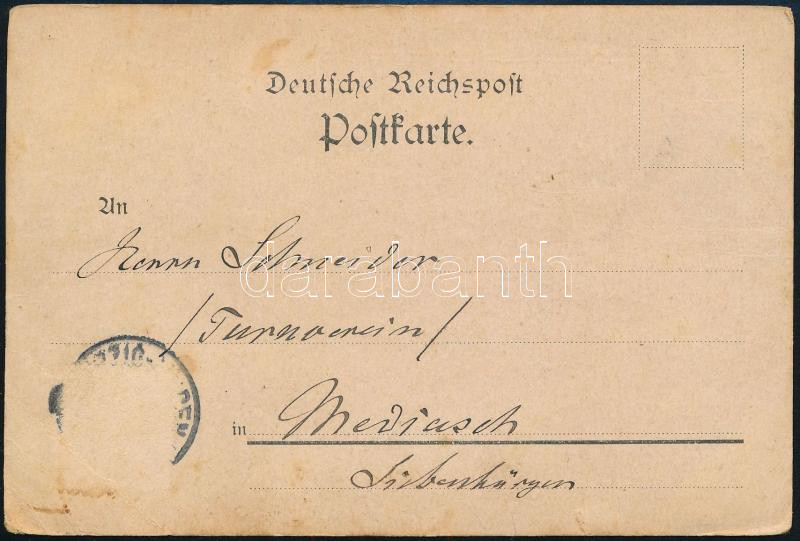 Deutsche Reichspost
Postkarte.
An
Herrn Schneider
/Turnverein/
in Mediasch
Siebenbürgen
darabanth